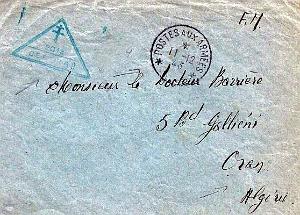 F.M
POSTES AUX ARMÉES
11-12
Monsieur le Docteur Barriere
5 Bd Galliéni
Oran
Algérie